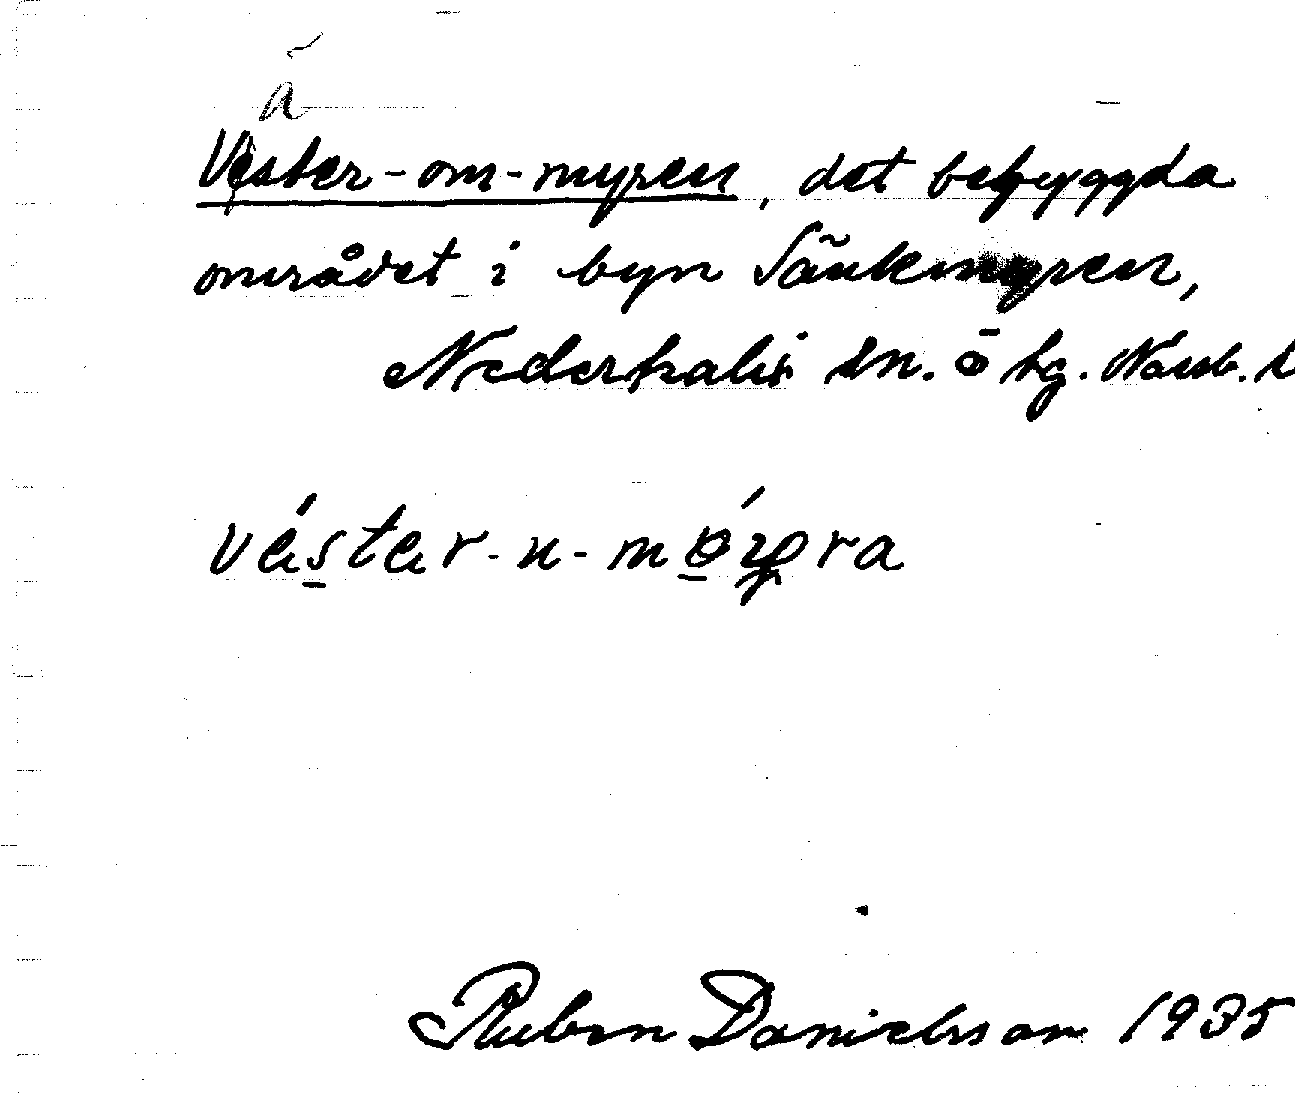 ä
Vester-om-myren, det bebyggda
området i byn Sänkmyren,
Nederkalix sn. ö tg. Norrb. l
véster-u-m ra
Ruben Danielsson 1935